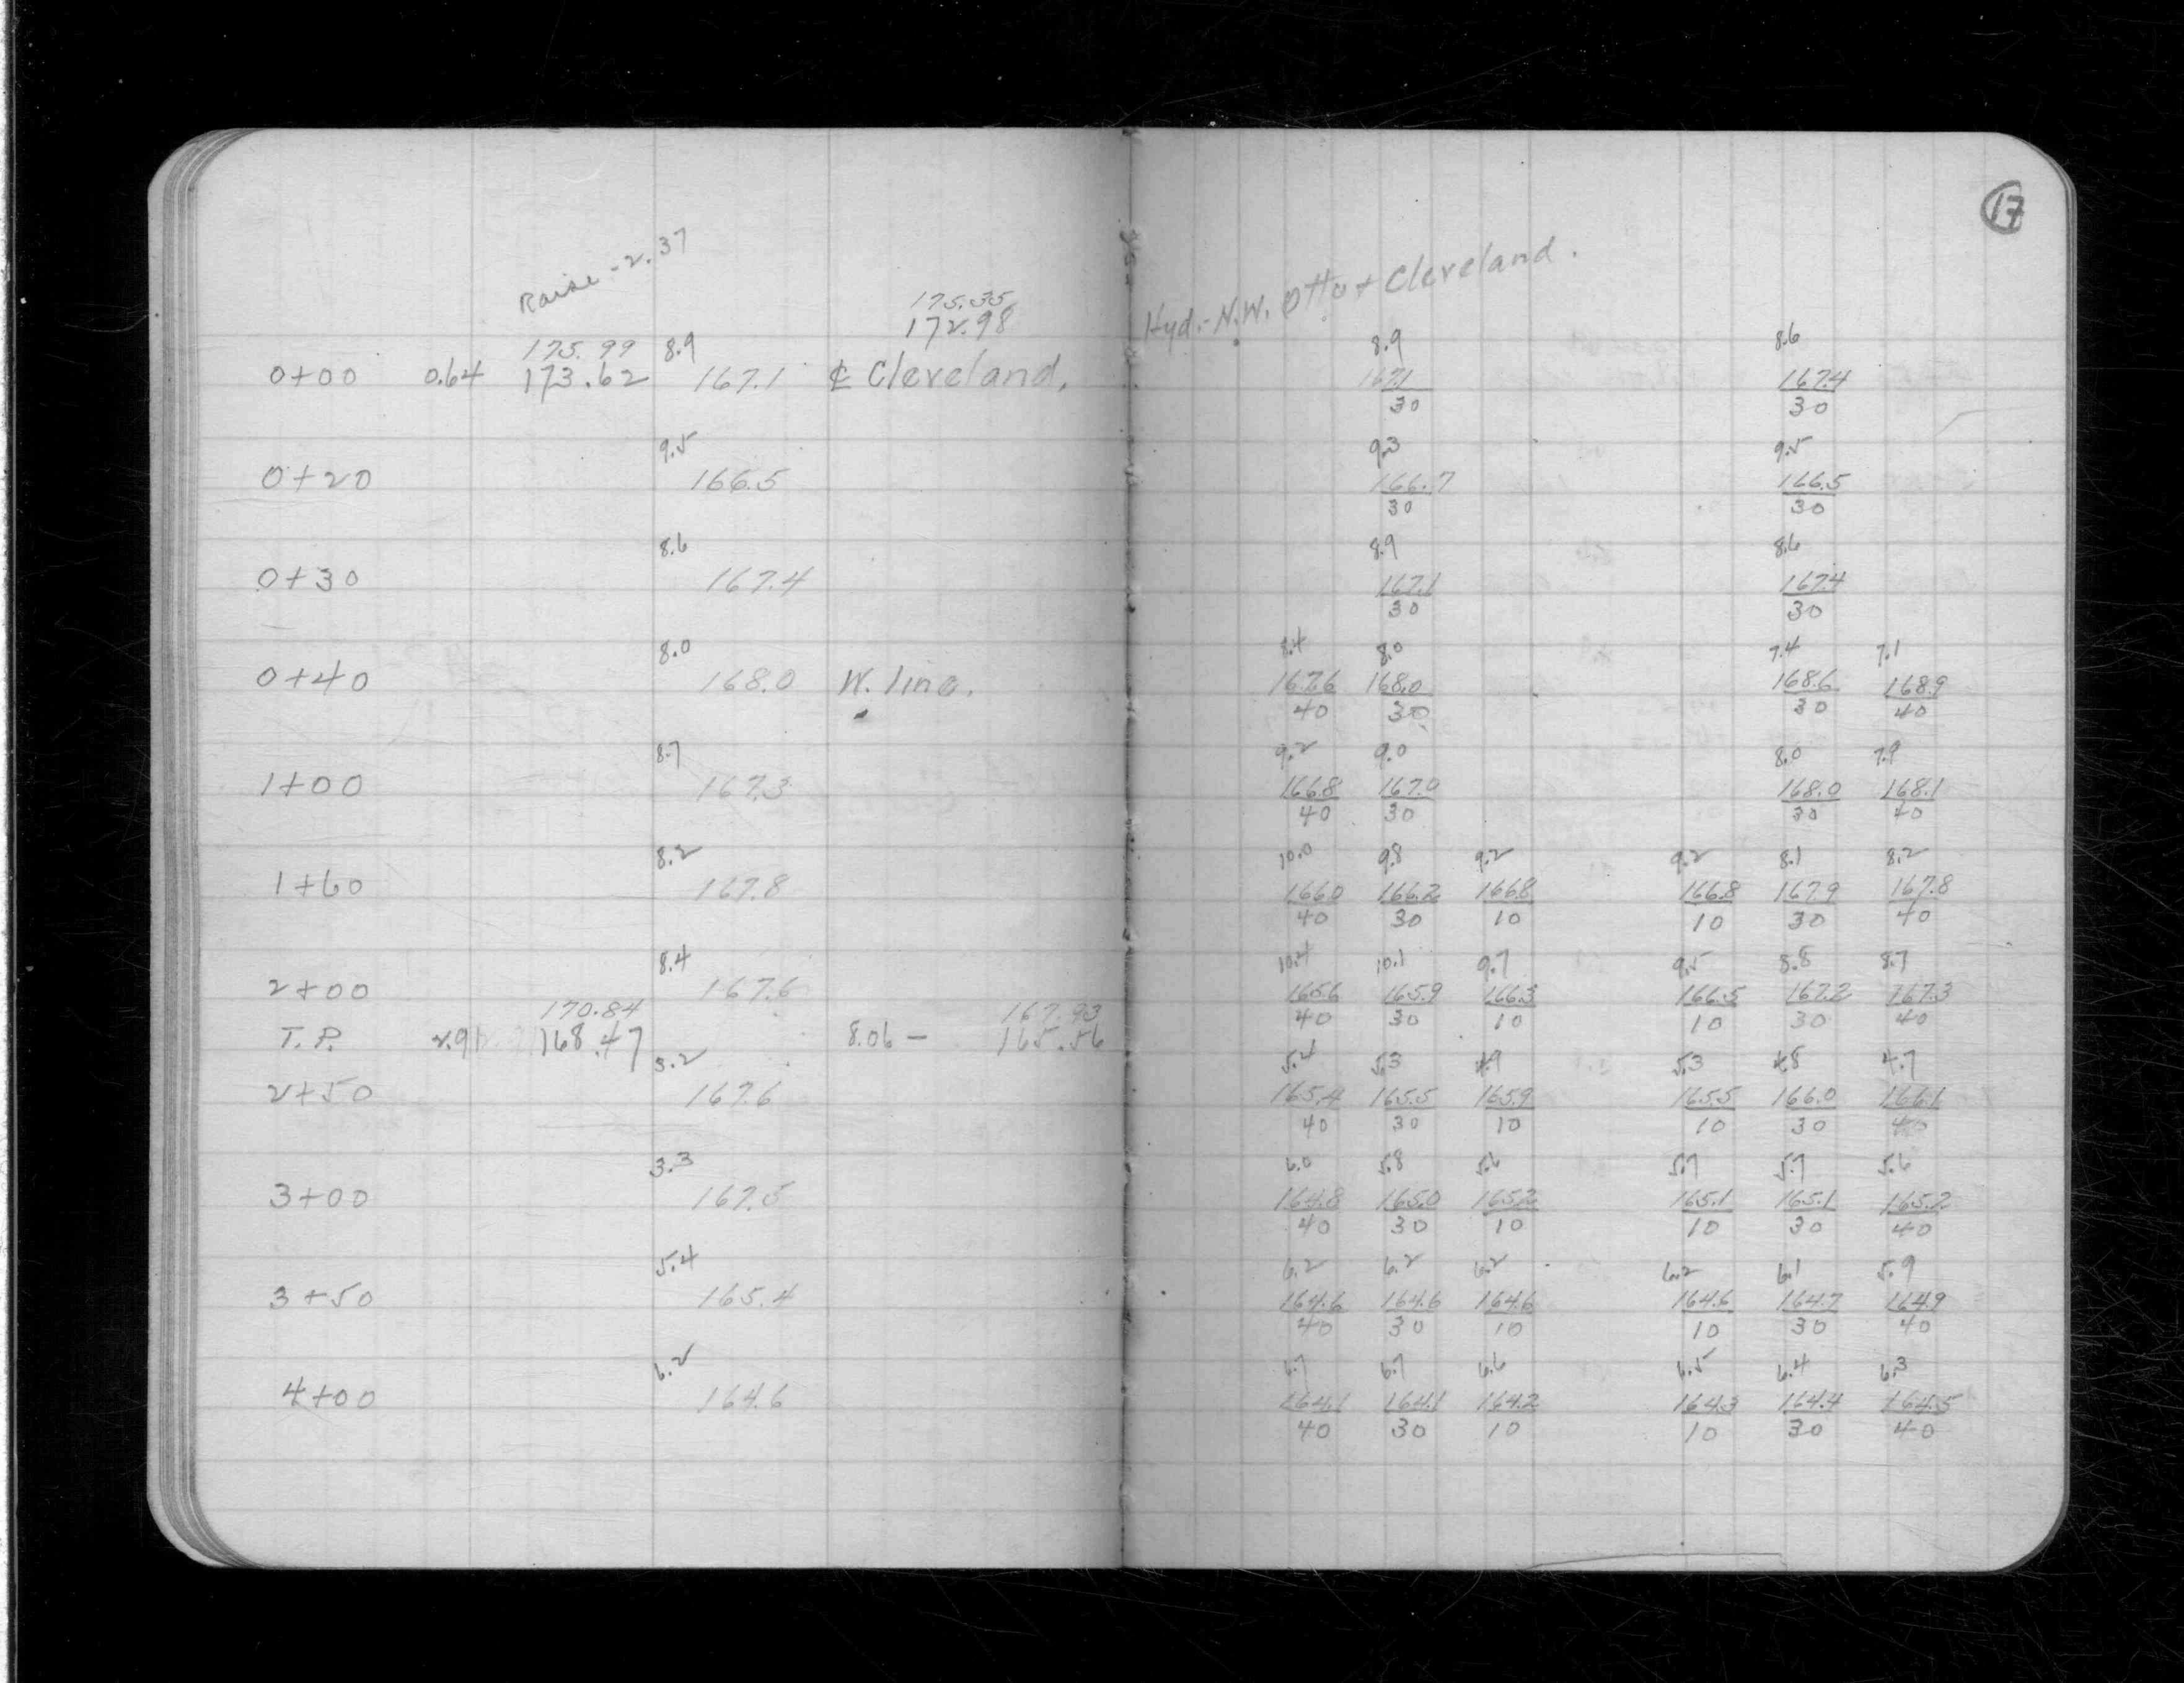 17
Raise - 2.37
175.35
172.98 Hyd.- N.W. Otto + Cleveland.
175.99 8.9 8.9 8.6
0+00 0.64 173.62 167.1 ℄ Cleveland. 167.1 167.4
30 30
9.5 9.3 9.5
0+20 166.5 166.7 166.5
30 30
8.6 8.9 8.6
0+30 167.4 167.1 167.4
30 30
8.0 8.4 8.0 7.4 7.1
0+40 168.0 W. line. 167.6 168.0 168.6 168.9
40 30 30 40
8.7 9.2 9.0 8.0 7.9
1+00 167.3 166.8 167.0 168.0 168.1
40 30 30 40
8.2 10.0 9.8 9.2 9.2 8.1 8.2
1+60 167.8 166.0 166.2 166.8 166.8 167.9 167.8
40 30 10 10 30 40
8.4 10.4 10.1 9.7 9.5 8.8 8.7
2+00 167.6 165.6 165.9 166.3 166.5 167.2 167.3
40 30 10 10 30 40
170.84 167.93
T.P. 2.91 168.47 8.06 - 165.56
3.2 5.4 5.3 4.9 5.3 4.8 4.7
2+50 167.6 165.4 165.5 165.9 165.5 166.0 166.1
40 30 10 10 30 40
3.3 6.0 5.8 5.6 5.7 5.7 5.6
3+00 167.5 164.8 165.0 165.2 165.1 165.1 165.2
40 30 10 10 30 40
5.4 6.2 6.2 6.2 6.2 6.1 5.9
3+50 165.4 164.6 164.6 164.6 164.6 164.7 164.9
40 30 10 10 30 40
6.2 6.7 6.7 6.6 6.5 6.4 6.3
4+00 164.6 164.1 164.1 164.2 164.3 164.4 164.5
40 30 10 10 30 40